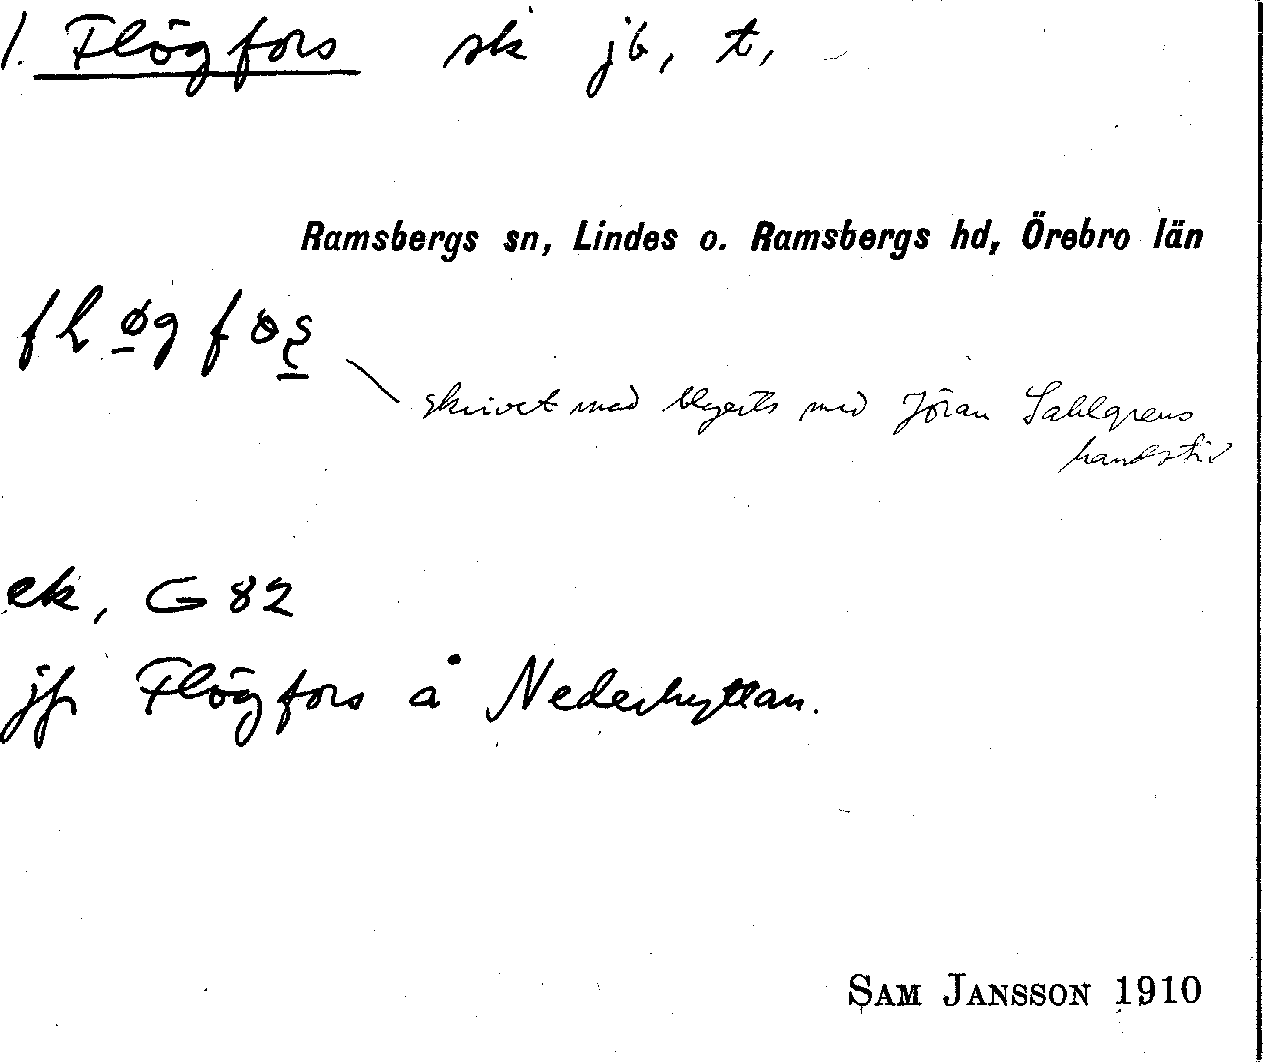 1. Flögfors sk jb, t,
Ramsbergs sn, Lindes o. Ramsbergs hd, Örebro län
skrivet med blyerts med Jöran Sahlgrens
handstil
ek, G 82
jfr Flögfors å Nederhyttan.
SAM JANSSON 1910